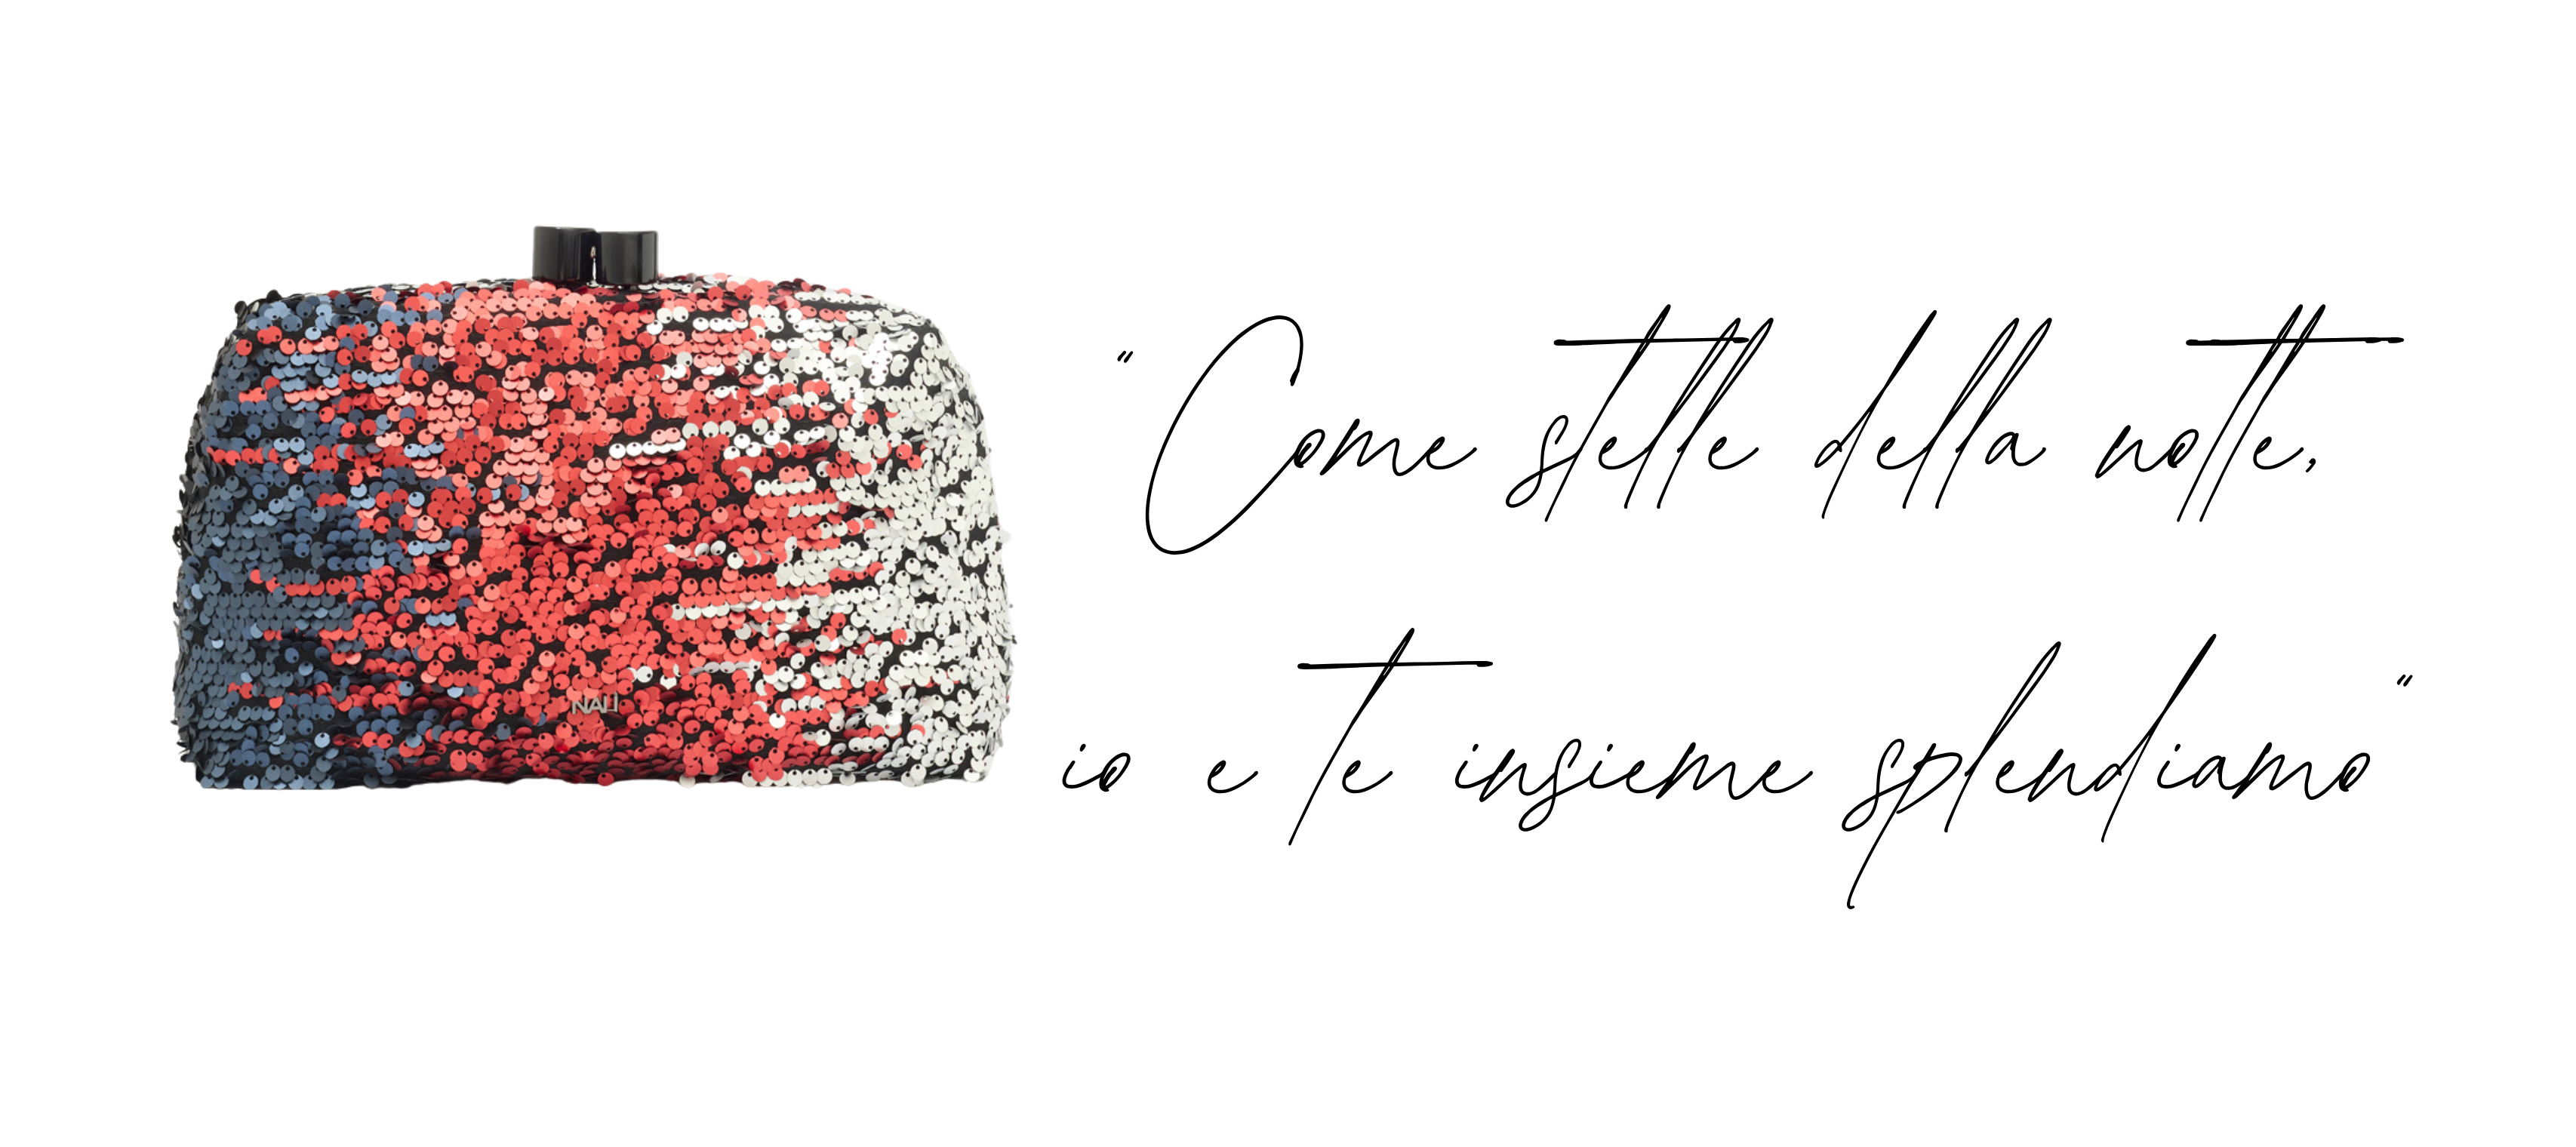 NALI
"Come stelle della notte,
io e te insieme splendiamo"